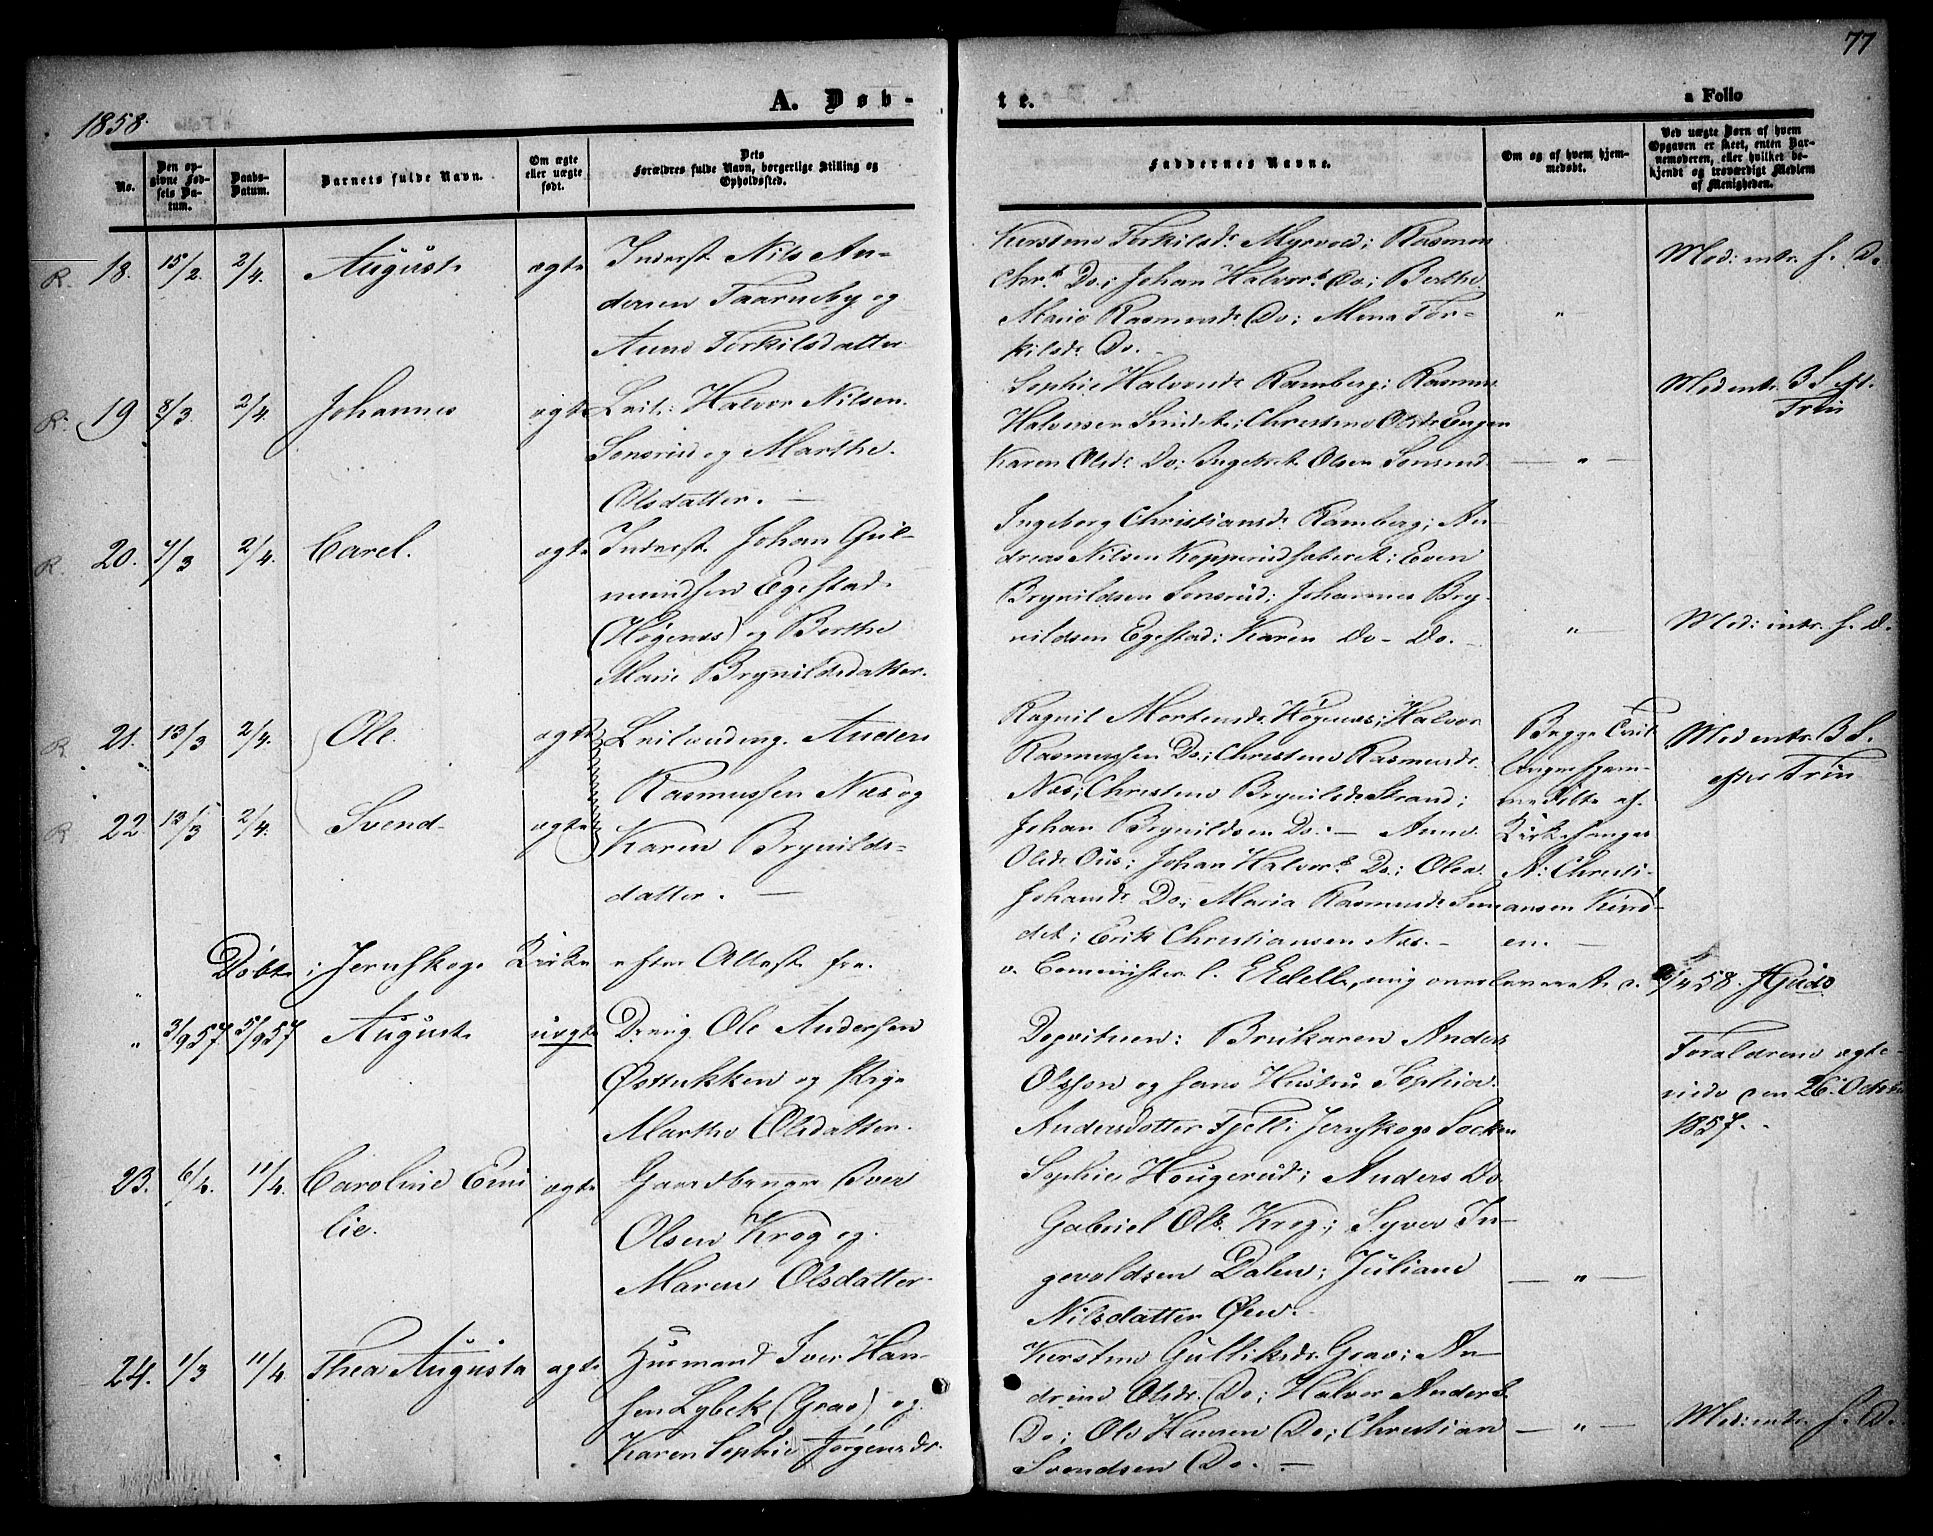 77
1858.
A. Døb-
te.
a Folio
No.
Den op-
givne Fød-
sels Da-
tum.
Daabs-
Datum.
Barnets fulde Navn.
Om ægte
eller uægte
født.
Dets
Forældres fulde Navn, borgerlige Stilling og
Opholdssted.
Faddernes Navne.
Om og af hvem hjem-
medøbt.
Ved uægte Børn af hvem
Opgaven er skeet, enten Bar-
nemoderen, eller hvilket be-
kjendt og troværdigt Medlem
af Menigheden.
R. 18. 15/2. 2/4. August ægte
Inderst Nils An-
dersen Taarneby og
Anne Torkilsdatter
Kirstine Torkilsdr Myrvold; Rasmus
Chrs. Do.; Johan Halvors. Do; Berthe
Marie Rasmusdr Do; Mina Tor-
kilsdr Do.
Mod: intr. f. D.
R. 19 8/3. 2/4. Johannes ægte
Leil: Halvor Nilsen
Sonsrud og Marthe
Olsdatter.
Sophie Halvorsdr Ramberg; Rasmus
Halvorsen Sundet; Christine Olsdr Engen
Karen Olsdr Do; Ingebret Olsen Sonsrud
Mod intr. 3 S. eft.
Trin
R. 20. 7/3 2/4. Carel. ægte
Inderst Johan Gul-
mundsen Egestad
(Høgenæs) og Berthe
Marie Brynildsdatter.
Ingeborg Christiansdr Ramberg; An-
dreas Nilsen Kopperudsæteret; Even
Brynildsen Sonsrud; Johannes Bry-
nildsen Egestad; Karen Do- Do.
Mod: intr. f. D.
R 21. 13/3 2/4. Ole. ægte
R 22 13/3 2/4. Svend ægte
Leilending Anders
Rasmussen Næs og
Karen Brynilds-
datter.
Ragnil Mortensdr Høgenæs; Halvor
Rasmussen Do; Christine Rasmusdr
Næs; Christine Brynildsdr Strand;
Johan Brynildsen Do. - Anne
Olsdr Ous; Johan Halvors. Do; Olea
Johansdr Do; Maria Rasmusdr Sun-
det; Erik Christiansen Næs.
Begge Tvil
linger hjem-
medøbte af
Kirkesanger
A: Christi-
ansen Kind-
en.
Mod intr. 3 S.
efter Trin
Døbt i Jernskogs Kirke efter Attest fra
v. Comminister C. E Edell, mig overleveret d. 2/4 58. Hjuds
" 3/9 57 5/9 57 August uægte
Dreng Ole Andersen
Østtukken og Pige
Marthe Olsdatter.
Dopvitnen: Brukaren Anders
Olsson og hans Hustru Sophia
Andersdotter Fjell i Jernskogs Socken
Forældrene ægte-
viede den 26. October
1857.
23. 6/2. 11/4. Caroline Emi
lie. ægte
Gaardbruger Iver
Olsen Krog og
Maren Olsdatter
Sophie Hougerud; Anders Do
Gabriel Ols. Krog; Syver In-
gevoldsen Dalen; Juliane
Nilsdatter Øen.
24. 1/3 11/4 Thea Augusta ægte
Husmand Iver Han-
sen Lybek (Grav) og
Karen Sophie Jørgensdr.
Kirstine Gulliksdr. Grav; An-
drine Olsdr. Do; Halvor Anders.
Do; Ole Hansen Do; Christian
Svendsen Do.
Mod: intr. f. D.